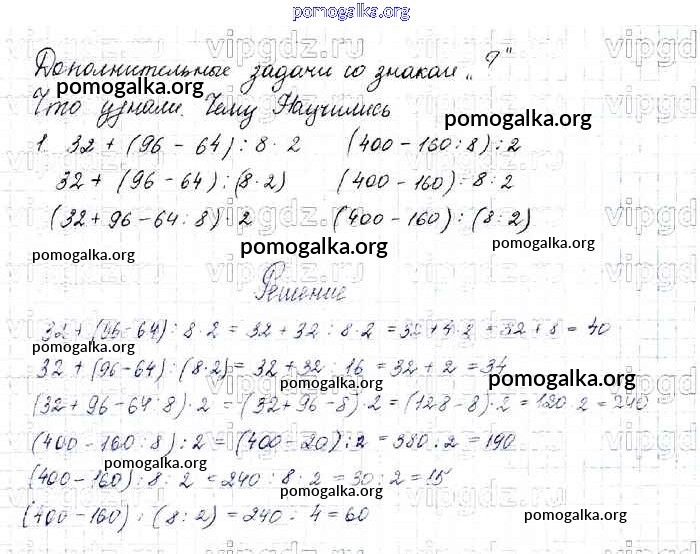 pomogalka.org
Дополнительные задачи со знаком „?"
Что узнали. Чему Научились
pomogalka.org
pomogalka.org
1. 32 + (96 - 64) : 8 · 2 (400 - 160 : 8) : 2
32 + (96 - 64) : (8 · 2) (400 - 160) : 8 : 2
(32 + 96 - 64 : 8) · 2 (400 - 160) : (8 : 2)
pomogalka.org
pomogalka.org
pomogalka.org
Решение
32 + (96 - 64) : 8 · 2 = 32 + 32 : 8 · 2 = 32 + 4 · 2 = 32 + 8 = 40
pomogalka.org
32 + (96 - 64) : (8 · 2) = 32 + 32 : 16 = 32 + 2 = 34
pomogalka.org
pomogalka.org
(32 + 96 - 64 : 8) · 2 = (32 + 96 - 8) · 2 = (128 - 8) · 2 = 120 · 2 = 240
(400 - 160 : 8) : 2 = (400 - 20) : 2 = 380 : 2 = 190
pomogalka.org
(400 - 160) : 8 : 2 = 240 : 8 · 2 = 30 : 2 = 15
pomogalka.org
(400 - 160) : (8 : 2) = 240 : 4 = 60
pomogalka.org